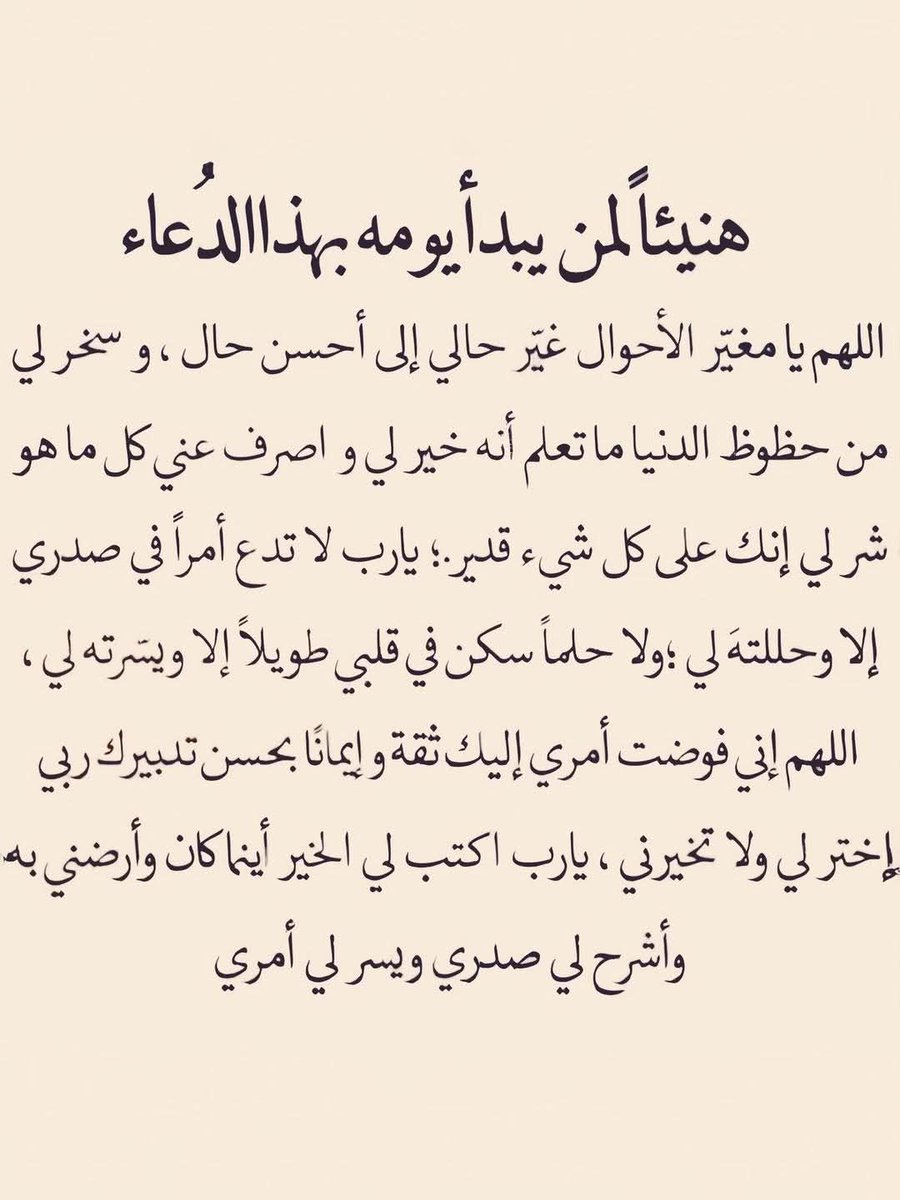 هنيئاً لمن يبدأ يومه بهذا الدُعاء
اللهم يا مغيّر الأحوال غيّر حالي إلى أحسن حال ، و سخر لي
من حظوظ الدنيا ما تعلم أنه خير لي و اصرف عني كل ما هو
شر لي إنك على كل شيء قدير.؛ يارب لا تدع أمراً في صدري
إلا وحللتهَ لي ؛ولا حلماً سكن في قلبي طويلاً إلا ويسّرته لي ،
اللهم إني فوضت أمري إليك ثقة و إيمانًا بحسن تدبيرك ربي
إختر لي ولا تخيرني ، يارب اكتب لي الخير أينما كان وأرضني به
وأشرح لي صدري ويسر لي أمري